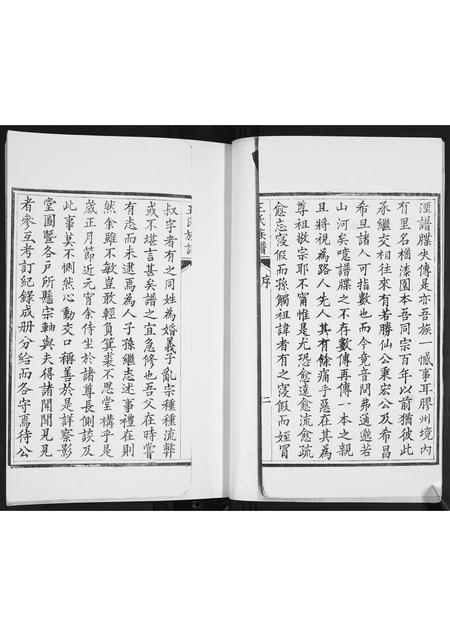 湮譜牒失傳是亦吾族一憾事耳膠州境內
有里名楢漆園本吾同宗百年以前猶彼此
承繼交相往來有若勝仙公秉宏公及希昌
希旦諸人可指數也而今竟音問弗通邈若
山河矣噫譜牒之不存數傳再傳一本之親
且將視為路人先人其有餘痛乎惡在其為
尊祖敬宗耶不甯惟是尤恐愈遠愈流愈疏
愈忘寖假而孫觸祖諱者有之寖假而姪冒
王氏族譜 序 二
王氏族譜
叔字者有之同姓為婚義子亂宗種種流弊
或不堪言甚矣譜之宜急修也吾父在時嘗
有志而未逮焉為人子孫繼志述事禮在則
然余雖不敏豈敢輕負箕裘不思堂構乎是
歲正月節近元宵余侍坐於諸尊長側談及
此事莫不惻然心動交口稱善於是詳察影
堂圖暨各戶所懸宗軸與夫得諸聞聞見見
者參互考訂紀錄成册分給而各守焉待公